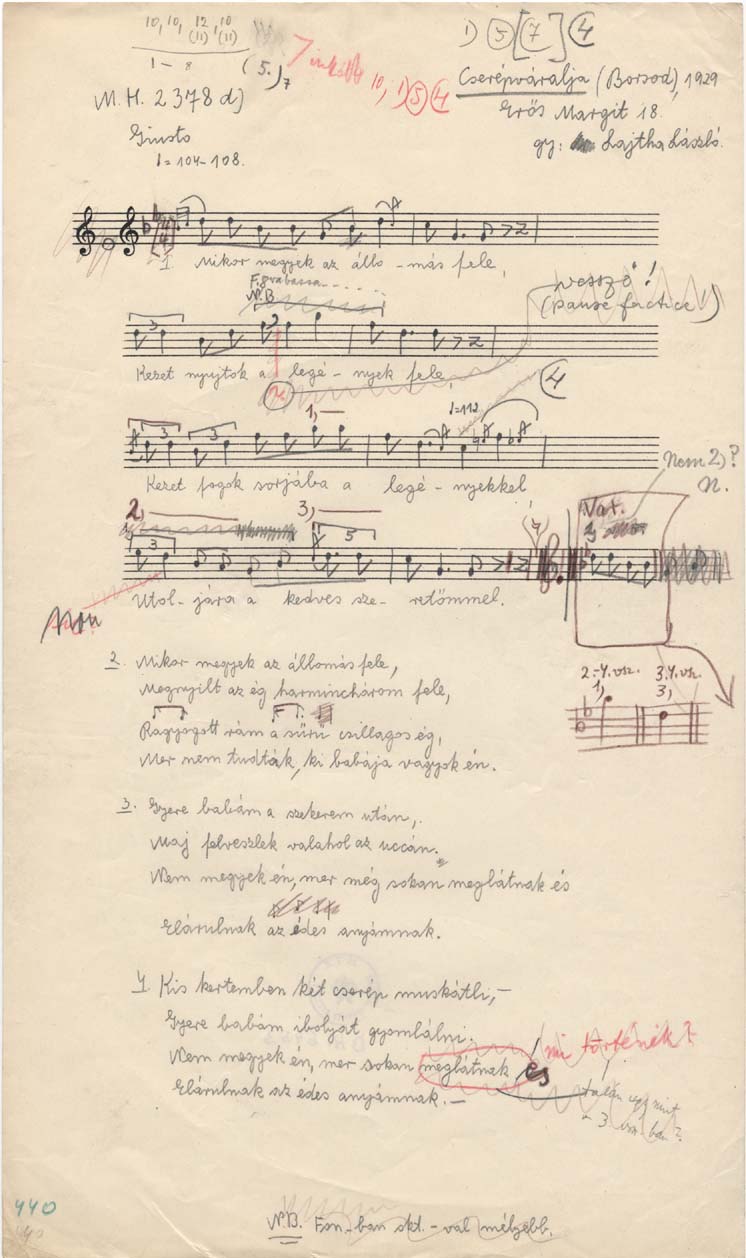 10, 10, 12 (11), 10 (11)
1 – 8
(5.) 7
10, 1) 5 4
1) 5 [7] 4
Cserépváralja (Borsod), 1929
Erős Margit 18.
gy: Lajtha László.
M. H. 2378 d)
Giusto
♩= 104–108.
1. Mikor megyek az állo – más fele,
F. grabassa
N.B.
vessző!
(pause factice!)
Kezet nyujtok a legé – nyek fele,
4
1,—
♩=112
Kezet fogok sorjába a legé – nyekkel
Nem 2)?
N.
2,
3,
Var.
Utol- jára a kedves sze – retőmmel.
2.-4. vsz.
1,
3.4. vsz.
3,
2. Mikor megyek az állomás fele,
Megnyilt az ég harminchárom fele,
Ragyogott rám a sűrű csillagos ég,
Mer nem tudták, ki babája vagyok én.
3. Gyere babám a szekerem után,
Maj felveszlek valahol az uccán.
Nem megyek én, mer még sokan meglátnak és
Elárulnak az édes anyámnak.
4. Kis kertemben két cserép muskátli,–
Gyere babám ibolyát gyomlálni.
mi történék?
Nem megyek én, mer sokan meglátnak és
Elárulnak az édes anyámnak.–
talán úgy mint
a 3 vsz.-ban?
440
N.B. Fon-ban okt.-val mélyebb.